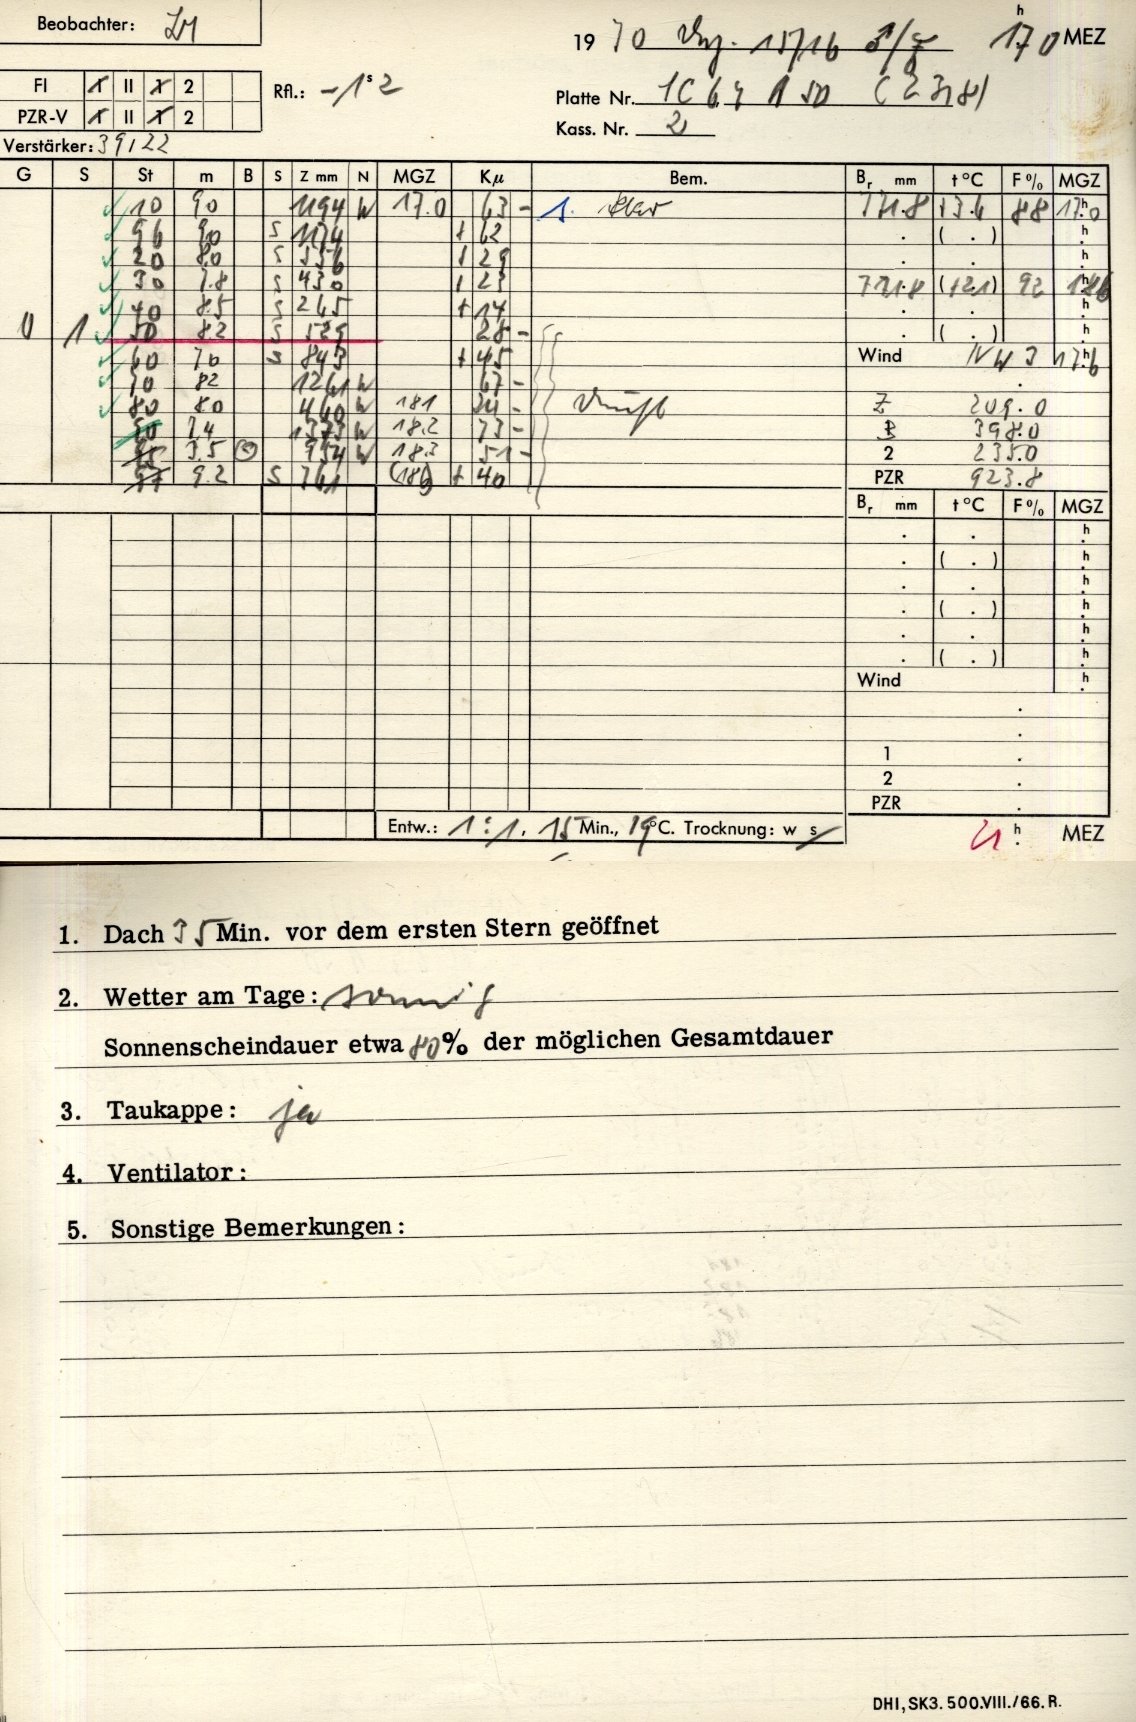 Beobachter:
19 70 Dez. 15/16 ♂/☿ 17 h 0 MEZ
FI I II 1 2
Rfl.: -1 s 2
PZR-V I II 1 2
Platte Nr.
Kass. Nr. 2
Verstärker: 39/22
G S St m B S Z mm N MGZ Kμ Bem. Br mm t °C F % MGZ
10 90 1194 W 17.0 63 - 1. 771.8 +3.4 88 17 h 0
96 90 S 1174 + 62 . ( . ) h
20 8.0 S 556 + 29 . . h
30 7.8 S 430 + 23 771.8 (+2.1) 92 18 h 6
40 8.5 S 265 + 14 . . h
0 1 50 82 S 529 28 - . ( . ) h
60 70 S 843 + 45 Wind NW 3 17 h 6
70 82 1261 W 67 -
80 80 460 W 181 24 - Dunst Z 209.0
90 7.4 1373 W 18.2 73 - 398.0
95 3.5 954 W 18.3 51 - 2 235.0
97 9.2 S 761 + 40 PZR 923.8
Br mm t °C F % MGZ
. . h
. ( . ) h
. . h
. ( . ) h
. . h
. ( . ) h
Wind h
.
.
1 .
2 .
PZR .
Entw.: 1:1, 15 Min., 19 °C. Trocknung: w s
21 h MEZ
1. Dach 35 Min. vor dem ersten Stern geöffnet
2. Wetter am Tage: sonnig
Sonnenscheindauer etwa 80 % der möglichen Gesamtdauer
3. Taukappe: ja
4. Ventilator:
5. Sonstige Bemerkungen:
DHI, SK3. 500.VIII./66. R.